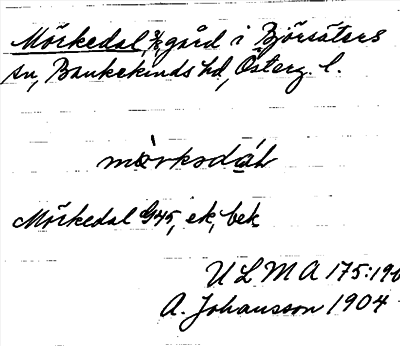 Mörkedal, ½ gård i Björsäters
sn, Bankekinds hd, Österg. l.
mò̀rksdáḷ
Mörkedal G45, ek, bek
ULMA 175:190
A. Johansson 1904